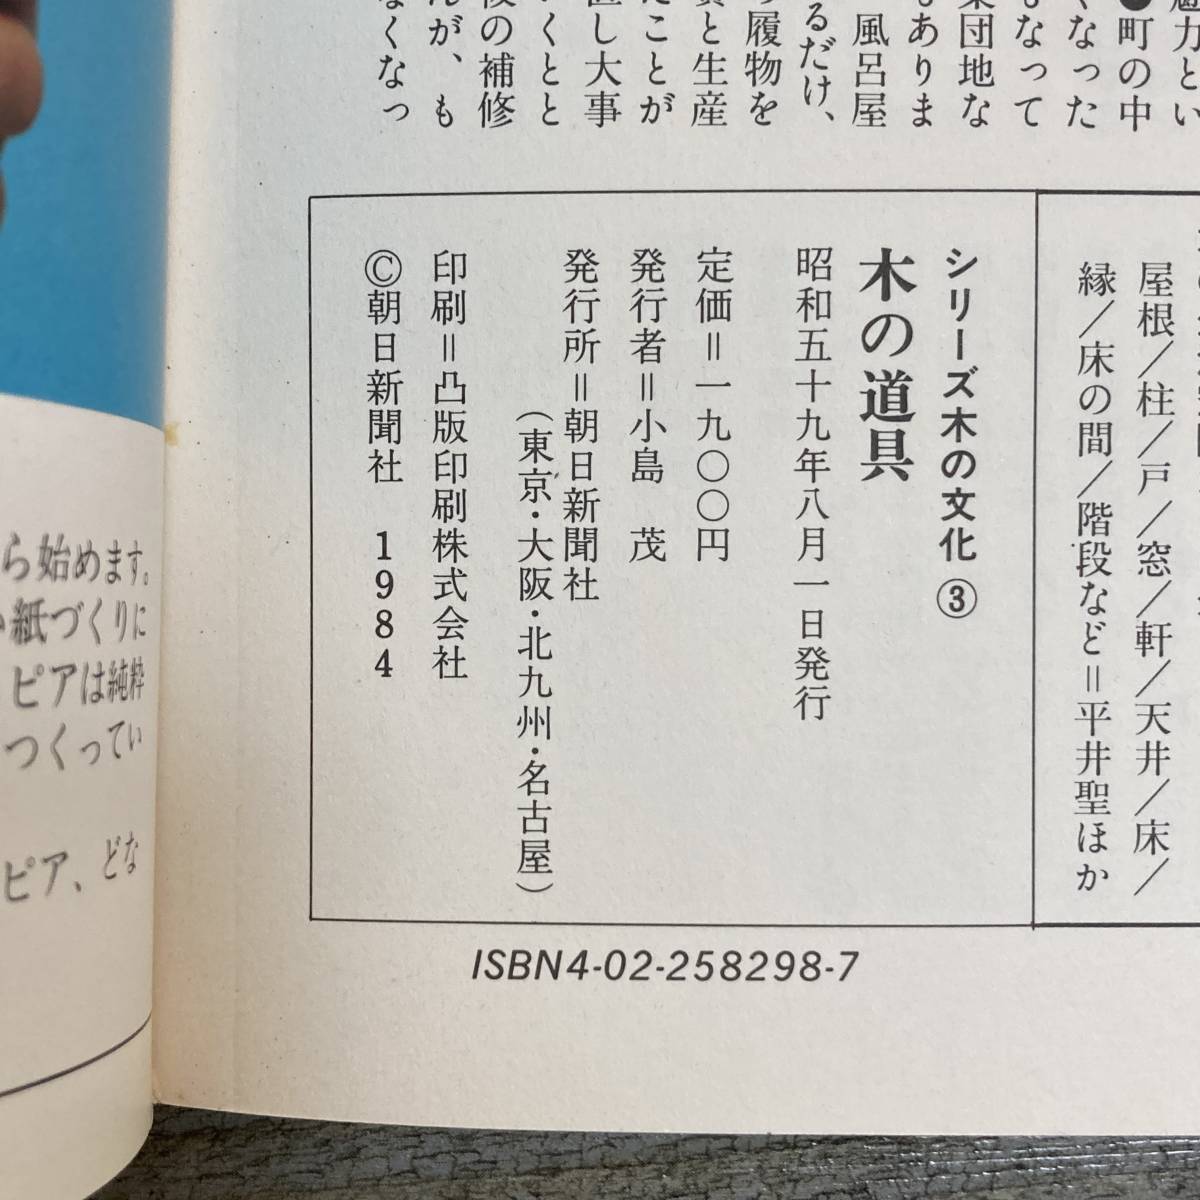 力とい
●町の中
くなった
もなって
集団地な
もありま
風呂屋
るだけ、
履物を
と生産
たことが
直し大事
くとと
後の補修
んが、も
なくなっ
屋根／柱／戸／窓／軒／天井／床／
縁／床の間／階段など＝平井聖ほか
シリーズ木の文化③
木の道具
昭和五十九年八月一日発行
定価＝一九〇〇円
発行者＝小島　茂
発行所＝朝日新聞社
（東京・大阪・北九州・名古屋）
印刷＝凸版印刷株式会社
©朝日新聞社　1984
ISBN4-02-258298-7
ら始めます。
紙づくりに
ピアは純粋
つくってい
ピア、どな